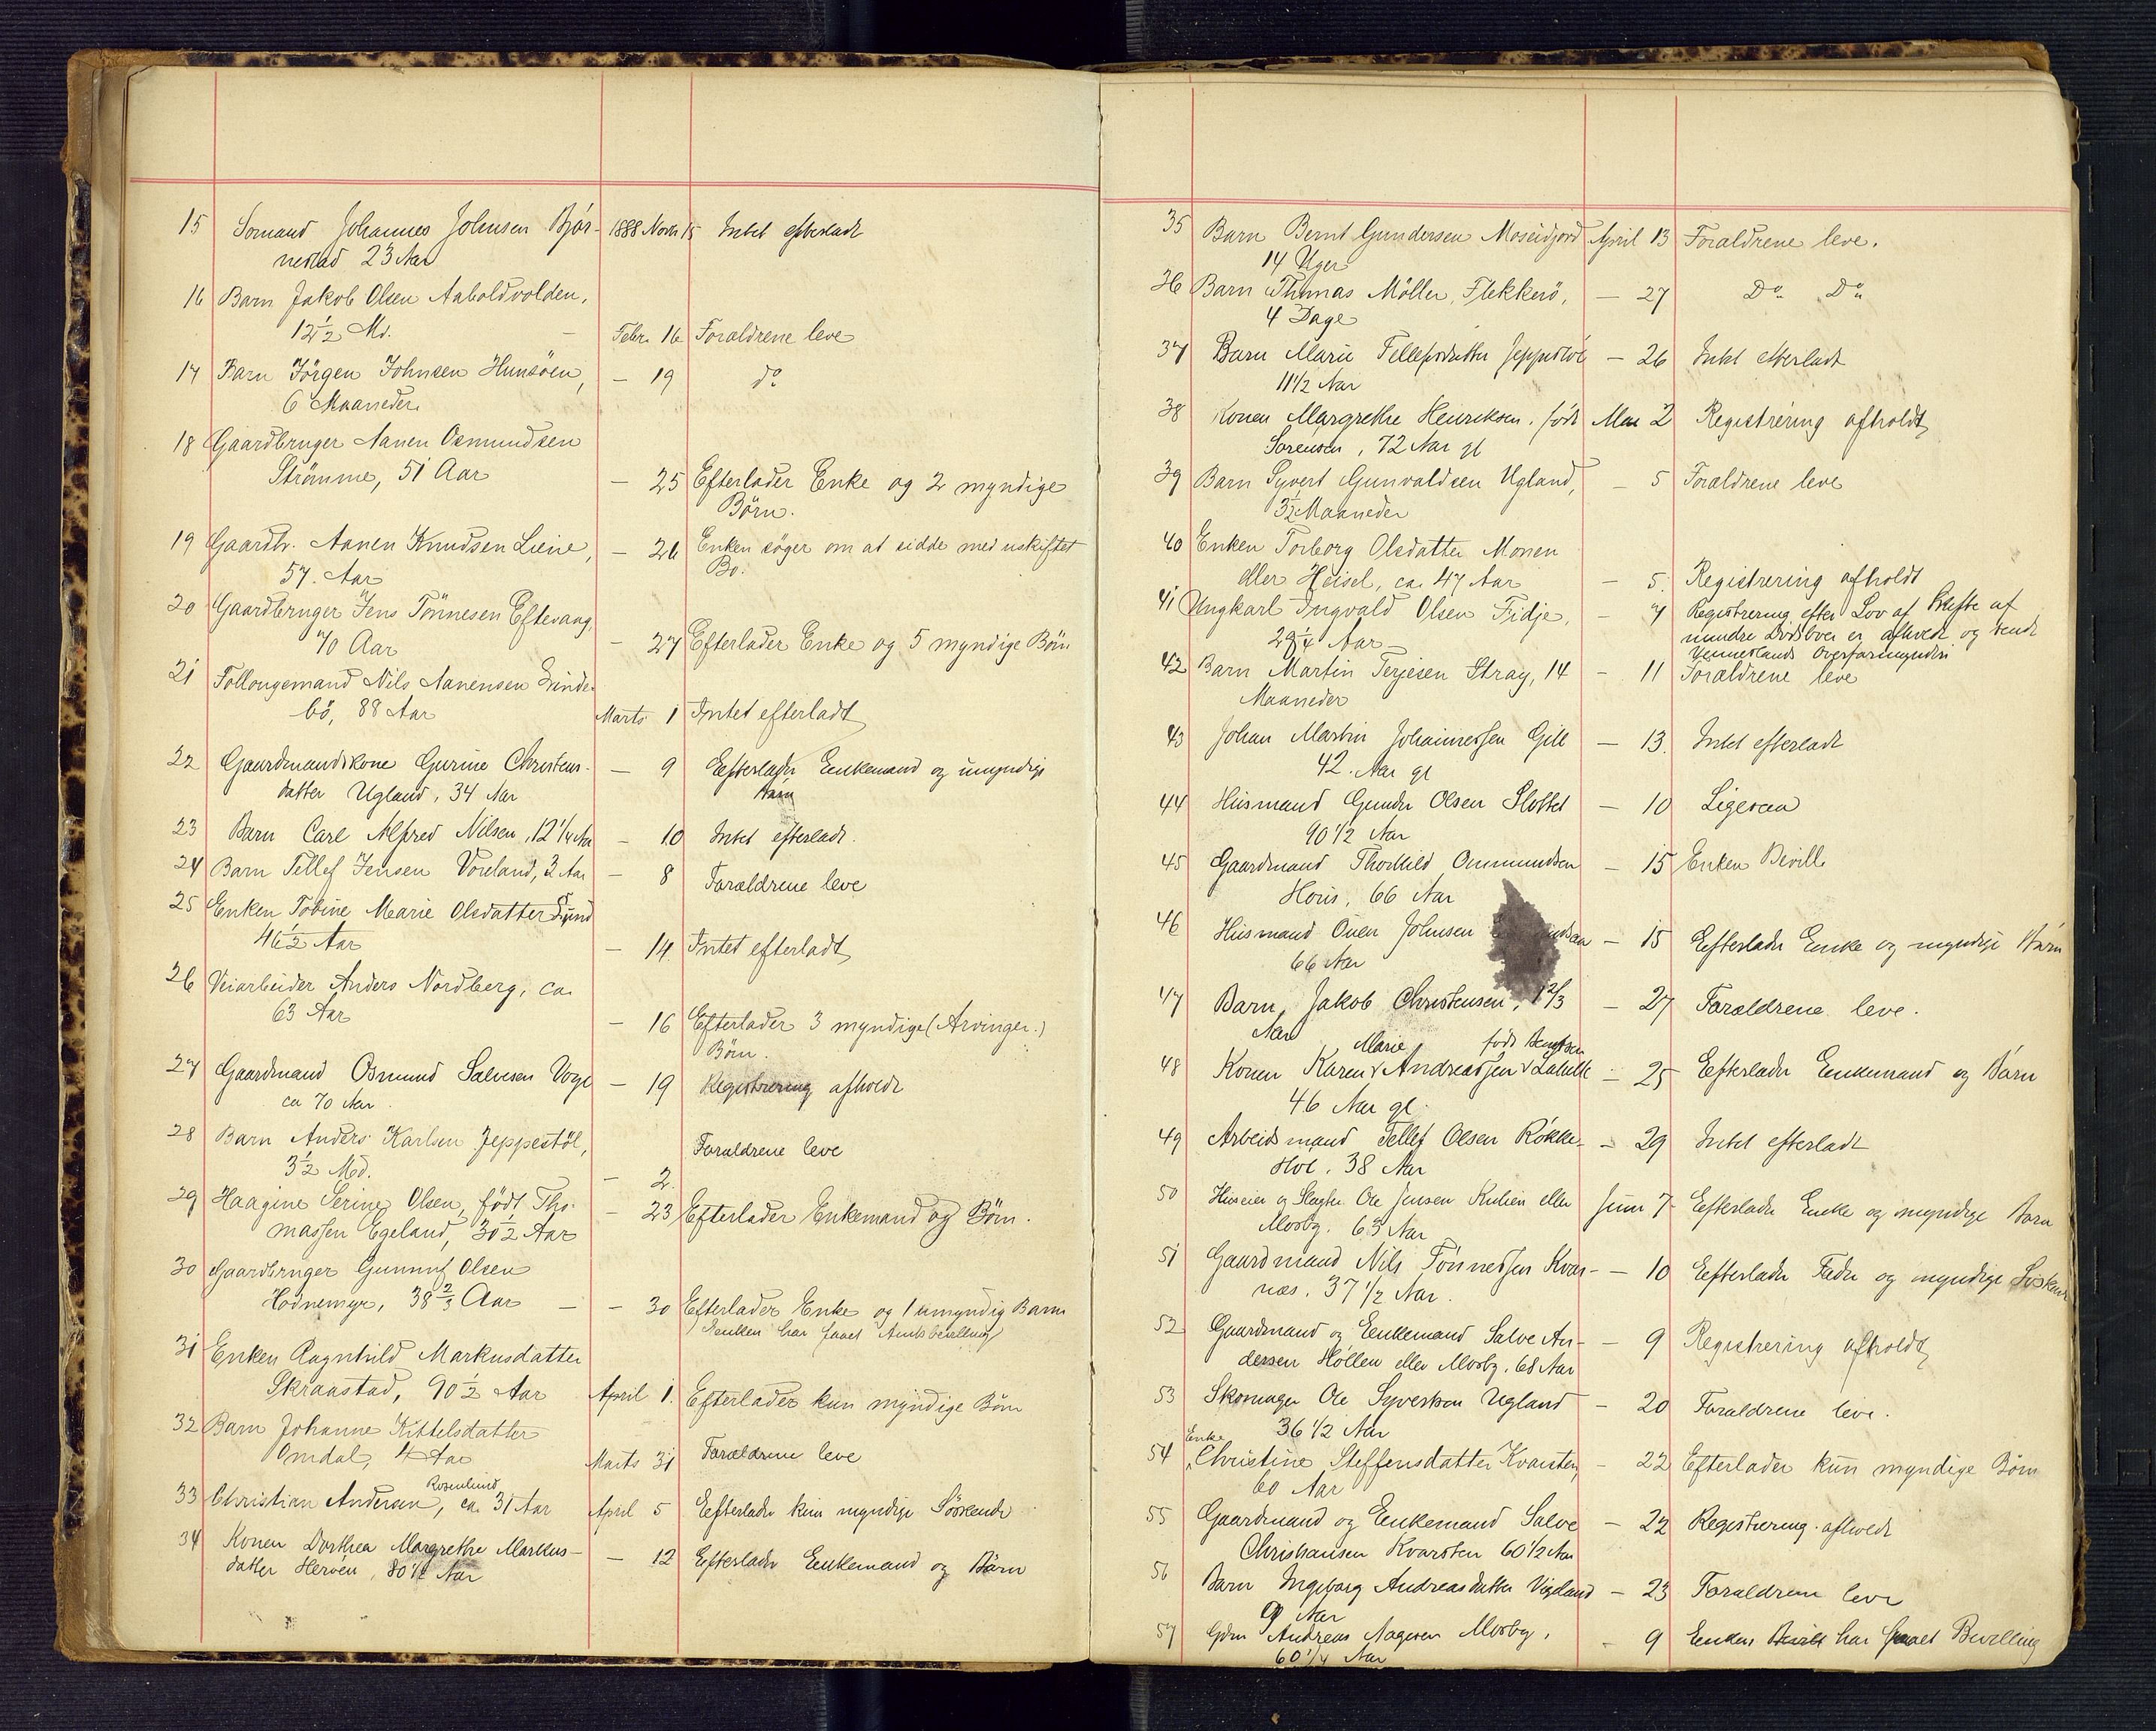 15 Sømand Johannes Johnsen Bjør- 1888 Novb 15 Intet efterladt
nestad 23 Aar
16 Barn Jakob Olsen Aaboldvolden,
12 1/2 Md. - Febr. 16 Forældrene leve
17 Barn Jörgen Johnsen Hunsöen, - 19 do
6 Maaneder
18 Gaardbruger Aanen Osmundsen
Strömme, 51 Aar - 25 Efterlader Enke og 2 myndige
Börn.
19 Gaardbr. Aanen Knudsen Liene, - 26 Enken söger om at sidde med uskiftet
57. Aar Bo.
20 Gaardbruger Jens Tönnesen Eftevaag,
70 Aar - 27 Efterlader Enke og 5 myndige Börn
21 Follougemand Nils Aanensen Grinde-
bö, 88 Aar Marts 1 Intet efterladt
22 Gaardmandskone Gurine Christens- - 9 Efterlader Enkemand og umyndige
datter Ugland, 34 Aar Børn
23 Barn Carl Alfred Nilsen, 12 1/4 Aar - 10 Intet efterladt.
24 Barn Tellef Jensen Voreland, 3 Aar - 8 Forældrene leve
25 Enken Tobine Marie Olsdatter Sund
46 1/2 Aar - 14 Intet efterladt
26 Veiarbeider Anders Nordberg, ca.
63 Aar - 16 Efterlader 3 myndige (Arvinger.)
Börn.
27 Gaardmand Osmund Salvesen Voge - 19 Registrering afholdt
ca 70 Aar.
28 Barn Anders Karlsen Jeppestöl, Forældrene leve
3 1/2 Md. - 2.
29 Haagine Serine Olsen, födt Tho- - 23 Efterlader Enkemand og Börn.
massen Egeland, 30 1/2 Aar
30 Gaardbruger Gunnuf Olsen
Hodnemyr, 38 2/3 Aar - - 30 Efterlader Enke og 1 umyndig Barn
Enken har faaet Amtsbevilling
31 Enken Ragnhild Markusdatter
Skraastad, 90 1/2 Aar April 1. Efterlader kun myndige Börn
32 Barn Johanne Kittelsdatter
Omdal, 4 Aar Marts 31 Forældrene leve
Rosenlund
33 Christian Andersen, ca. 31 Aar April 5 Efterlader kun myndige Söskende
34 Konen Dorthea Margrethe Markus- - 12 Efterlader Enkemand og Børn
datter Heröen, 80 1/2 Aar
35 Barn Bernt Gundersen Moseidjord April 13 Forældrene leve.
14 Uger
36 Barn Thomas Möller, Flekkerö, - 27 Do Do
4 Dage
37 Barn Marie Tellefsdatter Jeppestöl - 26 Intet efterladt
11 1/2 Aar
38 Konen Margrethe Henriksen. født Mai 2 Registrering afholdt
Sørensen, 72 Aar gl
39 Barn Syvert Gunvaldsen Ugland, - 5 Forældrene leve
3 1/2 Maaneder
40 Enken Torborg Olsdatter Monen
eller Heisel, ca. 47 Aar - 5. Registrering afholdt
41 Ungkarl Ingvald Olsen Fidje, - 7 Registrering efter Lov af Skifte af
28 1/4 Aar mindre Dödsboer er afholdt og sendt
Vennerlands Overformynderi
42 Barn Martin Terjesen Stray, 14 - 11 Forældrene leve
Maaneder
43 Johan Martin Johannessen Gill - 13. Intet efterladt
42. Aar gl
44 Husmand Gunder Olsen Slottet - 10 Ligesaa
90 1/2 Aar
45 Gaardmand Thorkild Ommundsen - 15 Enken Bevill.
Høiis, 66 Aar
46 Husmand Ouen Johnsen - 15 Efterlader Enke og myndige Børn
66 Aar
47 Barn Jakob Christensen, 1 2/3 - 27 Forældrene leve.
Aar
Marie født Berntsen
48 Konen Karen Andreassen - 25 Efterlader Enkemand og Børn
46 Aar gl.
49 Arbeidsmand Tellef Olsen Røkke- - 29 Intet efterladt
Hol. 38 Aar
50 Huseier og Slagter Ole Jensen Kulien eller Juni 7 Efterlader Enke og myndige Børn
Mosby. 63 Aar
51 Gaardmand Nils Tönnessen Kvar- - 10 Efterlader Fader og myndige Söskende
næs. 37 1/2 Aar.
52 Gaardmand og Enkemand Salve An- - 9 Registrering afholdt
dersen Höllen eller Mosby. 68 Aar
53 Skomager Ole Syvertsen Ugland - 20 Forældrene leve.
36 1/2 Aar
Enke
54 Christine Steffensdatter Kvarsten, - 22 Efterlader kun myndige Börn
60 Aar
55 Gaardmand og Enkemand Salve - 22 Registrering afholdt
Christiansen Kvarsten 60 1/2 Aar
56 Barn Ingeborg Andreasdatter Vigeland - 23 Forældrene leve
9 Aar
57 Gdm Andreas Aagesen Mosby, - 9 Enken har faaet Bevilling
60 1/4 Aar